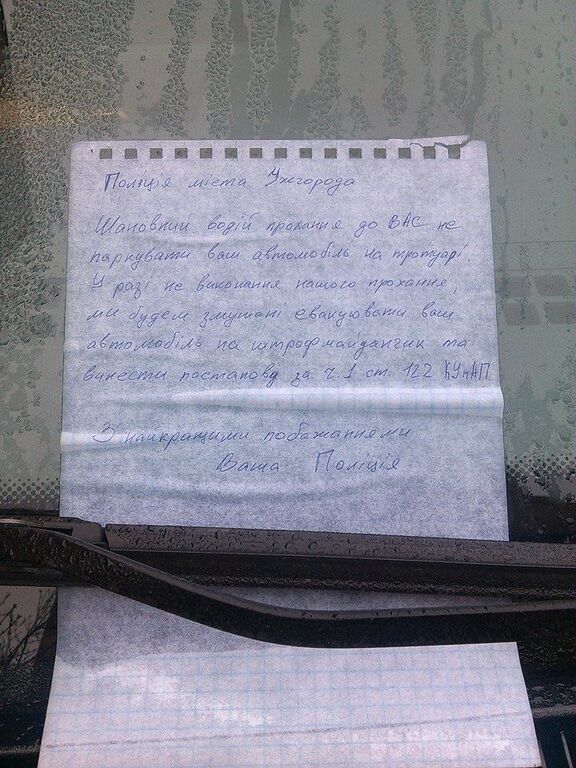 Поліція міста Ужгорода
Шановний водій прохання до ВАС не
паркувати ваш автомобіль на тротуарі.
У разі не виконання нашого прохання,
ми будем змушані евакуювати ваш
автомобіль на штрафмайданчик та
винести постанову за ч.1 ст. 122 КУпАП
З найкращими побажаннями
Ваша Поліція